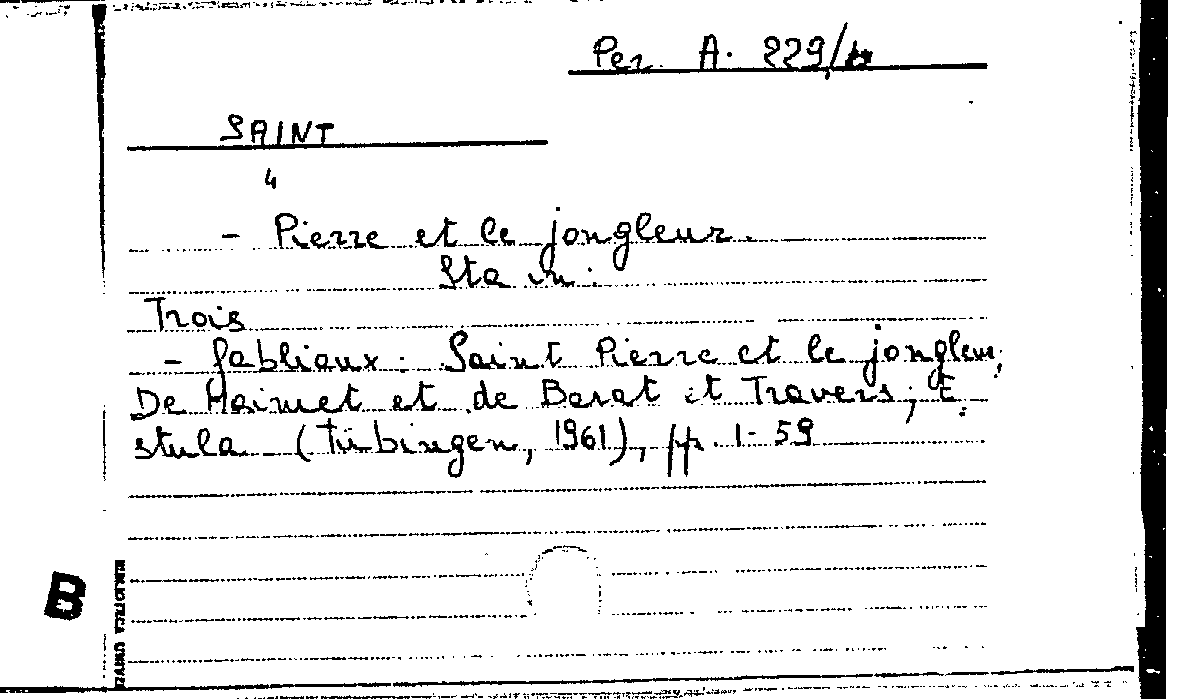 Per. A. 229/
SAINT
4
- Pierre et le jongleur.
Sta in:
Trois
- fabliaux: Saint Pierre et le jongleur,
De Haimet et de Barat et Travers; E.
stula (Tübingen, 1961), pp. 1-59
B